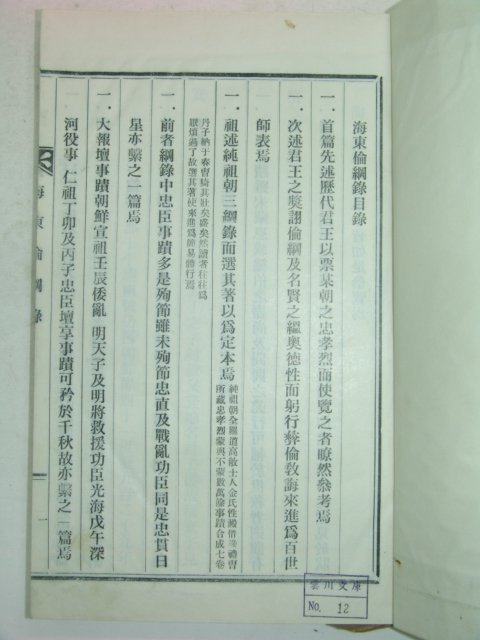 海東倫綱錄目錄
一．首篇先述歷代君王以票某朝之忠孝烈而使覽之者瞭然叅考焉
一．次述君王之奬詡倫綱及名賢之縕奧德性而躬行彛倫敎誨來進爲百世
師表焉
一．祖述純祖朝三綱錄而選其著以爲定本焉 純祖朝全羅道高敞士人金氏性澱借禮曹
所藏忠孝烈蒙與不蒙數萬諭事蹟合成七卷
丹子納于春曹猗其壯矣盛矣然讀者往往爲
厭煩過了故選其著使來進爲簡易體行焉
一．前者綱錄中忠臣事蹟多是殉節雖未殉節忠直及戰亂功臣同是忠貫日
星亦繫之一篇焉
一．大報壇事蹟朝鮮宣祖壬辰倭亂 明天子及明將救援功臣光海戊午深
河役事 仁祖丁卯及丙子忠臣壇享事蹟可矜於千秋故亦繫之一篇焉
海東倫綱錄
一
雲川文庫
No. 12